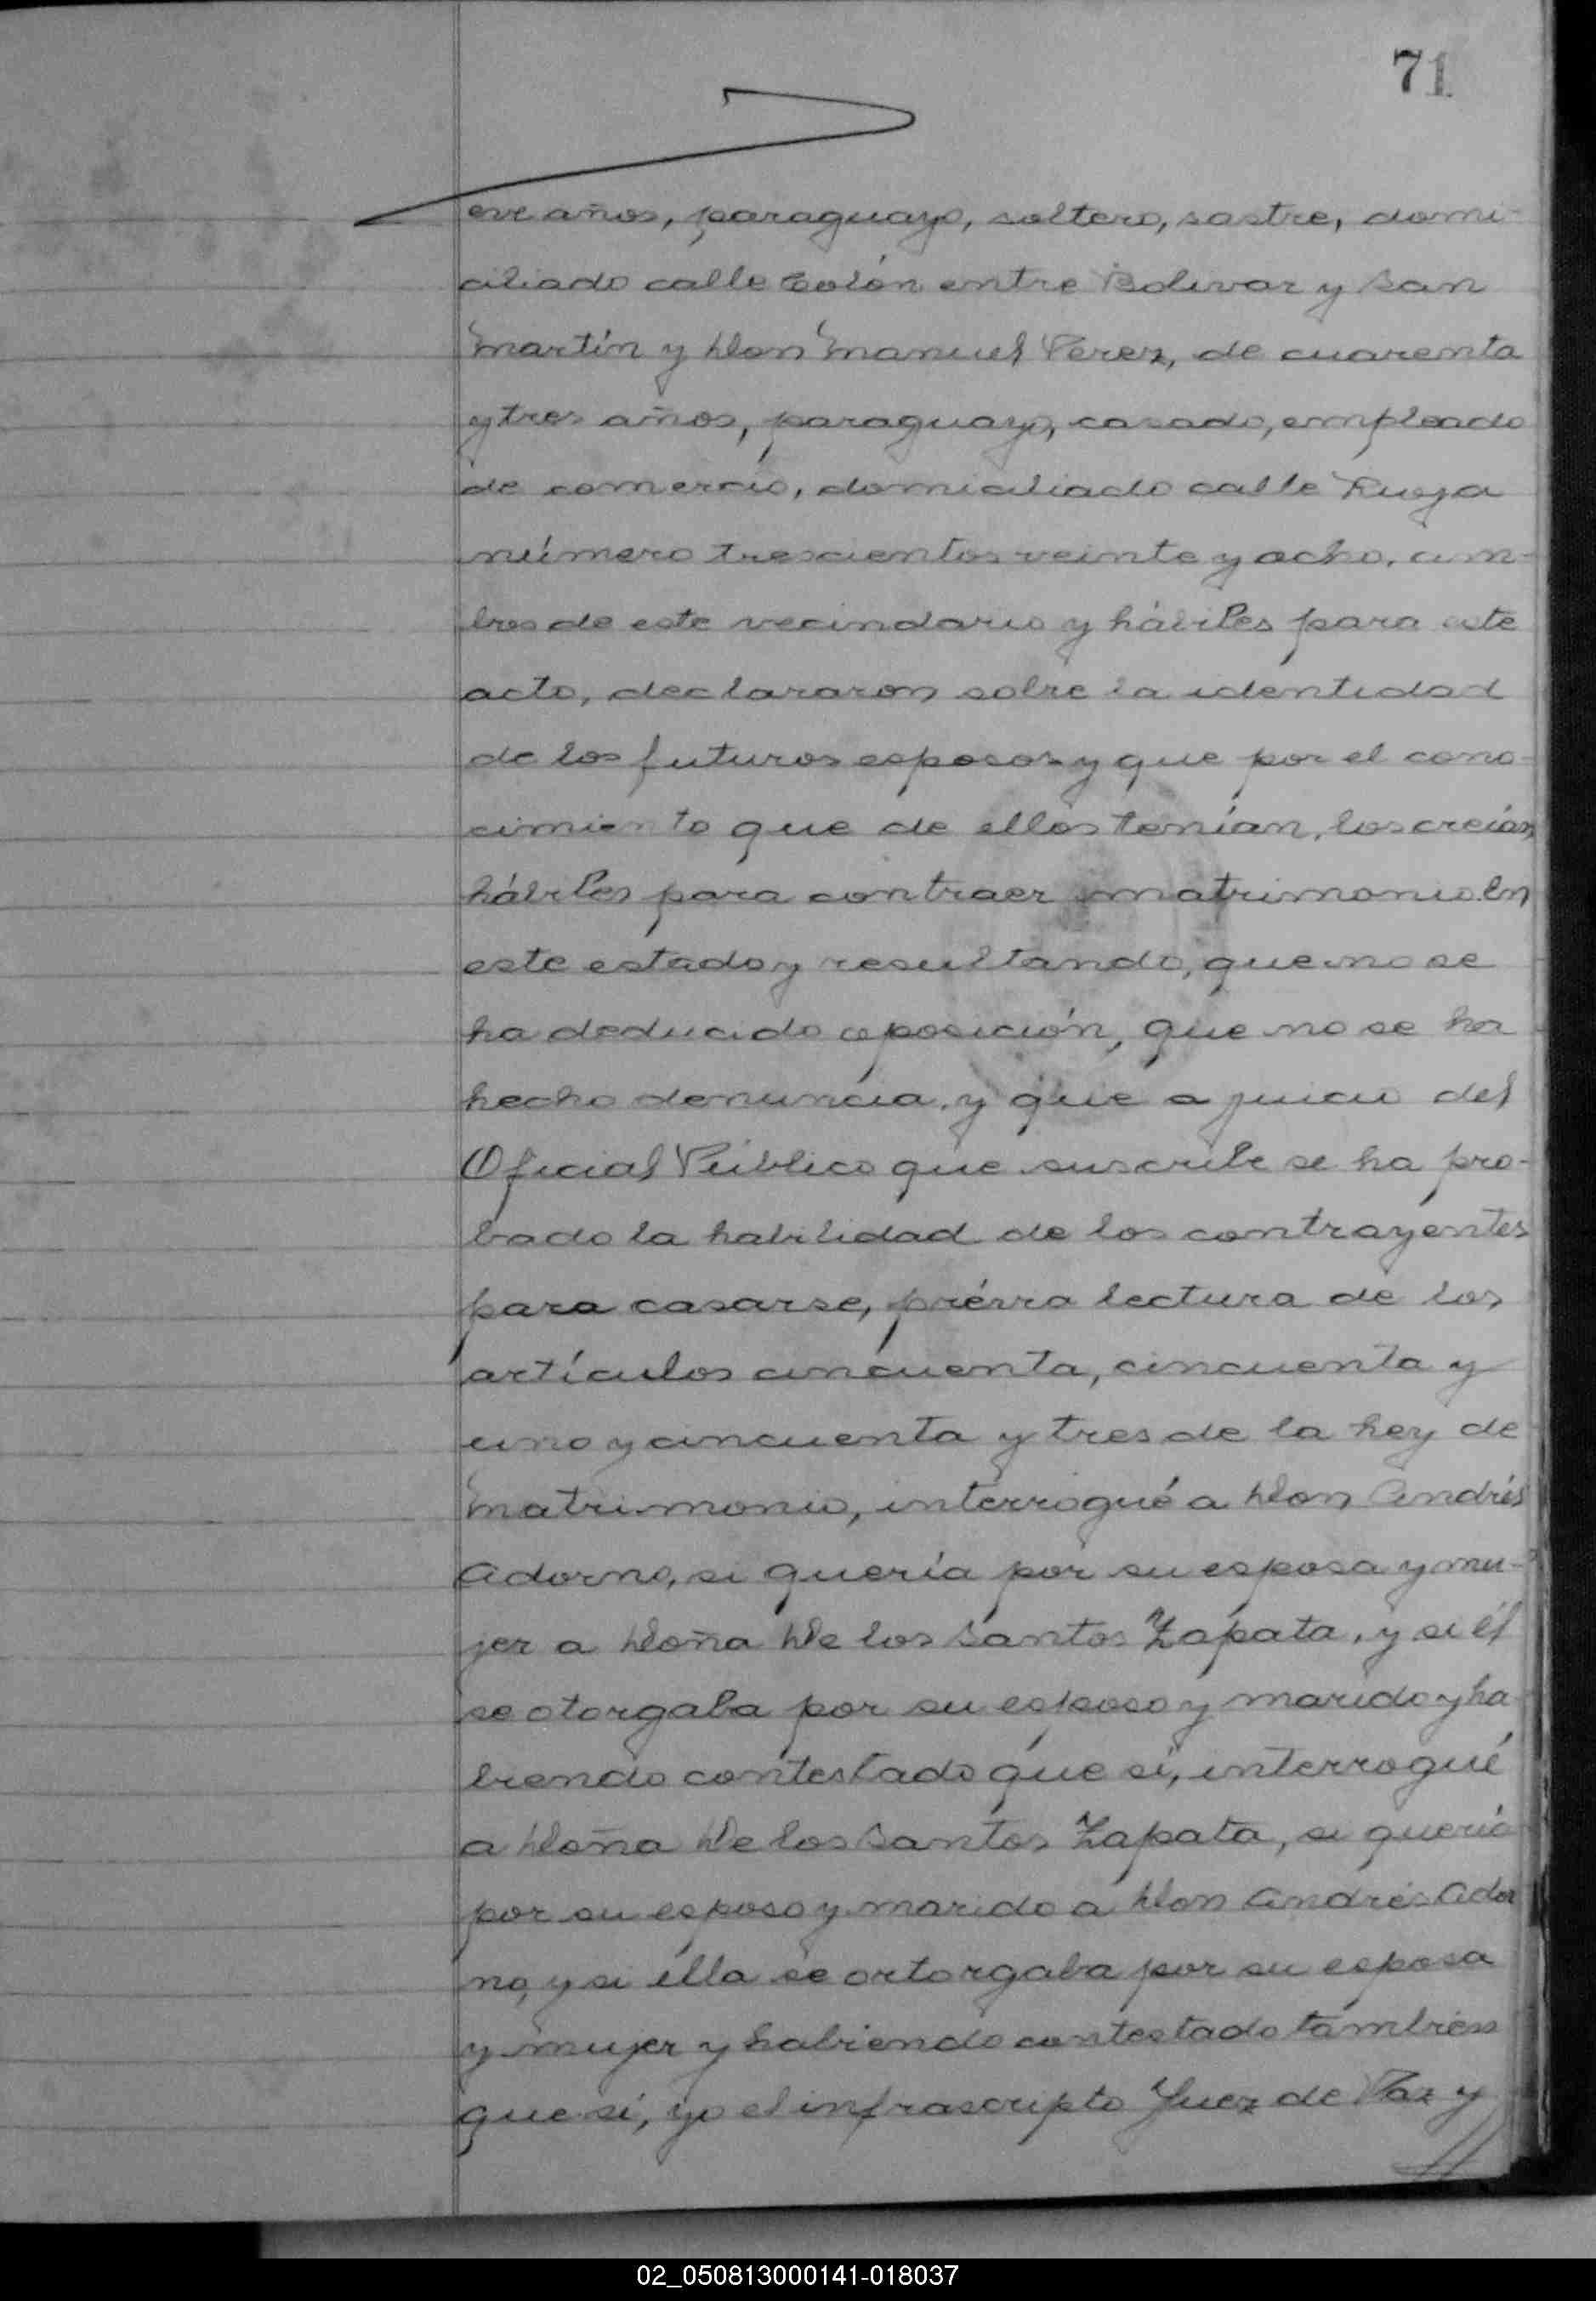 71
eve años, paraguayo, soltero, sastre, domi-
ciliado calle Colón entre Bolivar y San
Martín y Don Manuel Perez, de cuarenta
y tres años, paraguayo, casado, empleado
de comercio, domiciliado calle Rioja
número trescientos veinte y ocho, am-
bos de este vecindario y hábiles para este
acto, declararon sobre la identidad
de los futuros esposos y que por el cono-
cimiento que de ellos tenían, los creían
hábiles para contraer matrimonio. En
este estado y resultando, que no se
ha deducido oposición, que no se ha
hecho denuncia, y que a juicio del
Oficial Público que suscribe se ha pro-
bado la habilidad de los contrayentes
para casarse, prévia lectura de los
artículos cincuenta, cincuenta y
uno y cincuenta y tres de la Ley de
Matrimonio, interrogué a Don Andrés
Adorno, si quería por su esposa y mu-
jer a Doña De los Santos Zapata, y si él
se otorgaba por su esposo y marido y ha
biendo contestado que sí, interrogué
a Doña De los Santos Zapata, si quería
por su esposo y marido a Don Andrés Ador
no, y si élla se ortorgaba por su esposa
y mujer y habiendo contestado tambien
que sí, yo el infrascripto Juez de Paz y
02_050813000141-018037